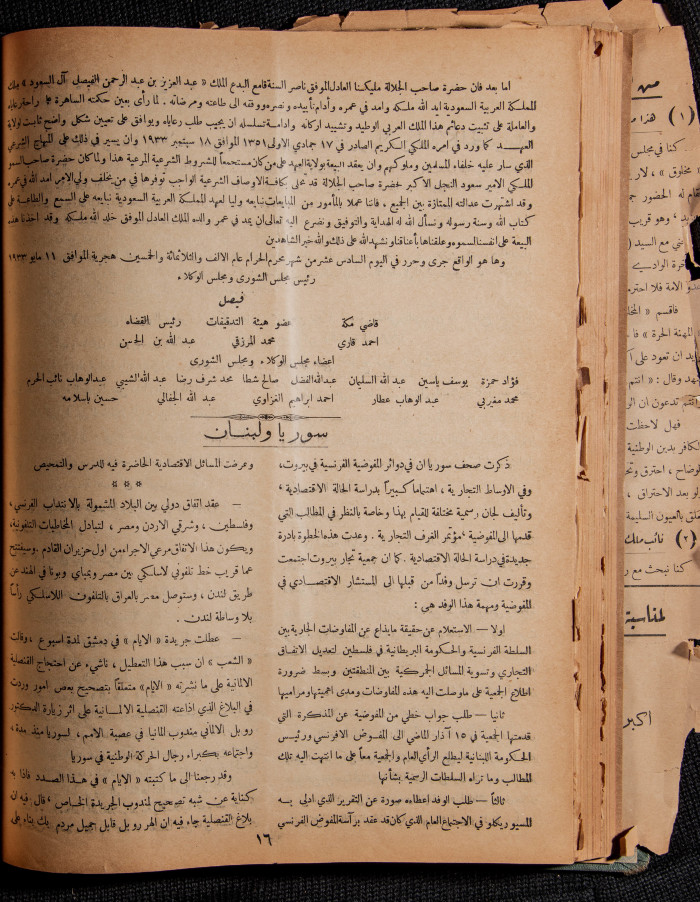 اما بعد فان حضرة صاحب الجلالة مليكنا العادل الموفق ناصر السنة قامع البدع الملك « عبد العزيز بن عبد الرحمن الفيصل آل السعود » ملك
المملكة العربية السعودية ايد الله ملكه وامد في عمره وأدام تأييده ونصره ووفقه الى طاعته ومرضاته . لما رأى بعين حكمته الساهرة على راحة رعاياه
والعاملة على تثبيت دعائم هذا الملك العربي الوطيد وتشييد اركانه وادامة تسلسله ان يجيب طلب رعاياه ويوافق على تعيين شكل واضح ثابت لولاية
العهد كما ورد في امره الملكي الكريم الصادر في ١٧ جمادي الاولى ١٣٥١ الموافق ١٨ سبتمبر ١٩٣٣ وان يسير في ذلك على المنهاج الشرعي
الذي سار عليه خلفاء المسلمين وملوكهم وان يعقد البيعة بولاية العهد على من كان مستجمعاً للشروط الشرعية المرعية هذا ولما كان حضرة صاحب السمو
الملكي الامير سعود النجل الاكبر لحضرة صاحب الجلالة قد تحلى بكافة الاوصاف الشرعية الواجب توفرها في من يخلف ولي الامر أمد الله في عمره
وقد اشتهرت عدالته الممتازة بين الجميع ، فاننا عملا بالمأمور من المبايعات نبايعه وليا لعهد المملكة العربية السعودية نبايعه على السمع والطاعة على
كتاب الله وسنة رسوله ونسأل الله له الهداية والتوفيق ونضرع اليه تعالى ان يمد في عمر والده الملك العادل الموفق خلد الله ملكه وقد اخذنا هذه
البيعة على انفسنا لسموه وعلقناها بأعناقنا ونشهد الله على ذلك والله خير الشاهدين
وها هو الواقع جرى وحرر في اليوم السادس عشر من شهر محرم الحرام عام الالف والثلاثمائة والخمسين هجرية الموافق ١١ مايو ١٩٣٣
رئيس مجلس الشورى ومجلس الوكلاء
فيصل
قاضي مكة عضو هيئة التدقيقات رئيس القضاء
احمد قاري محمد المرزقي عبد الله بن الحسن
اعضاء مجلس الوكلاء ومجلس الشورى
فؤاد حمزة يوسف ياسين عبد الله السليمان عبدالله الفضل صالح شطا محمد شرف رضا عبد الله الشيبي عبدالوهاب نائب الحرم
محمد مغيربي عبد الوهاب عطار احمد ابراهيم الغزاوي عبد الله الجفالي حسين باسلامه
سوريا ولبنان
ذكرت صحف سوريا ان في دوائر المفوضية الفرنسية في بيروت،
وفي الاوساط التجارية ، اهتماما كبيراً بدراسة الحالة الاقتصادية ،
وتأليف لجان رسمية مختلفة للقيام بهذا وخاصة بالنظر في المطالب التي
قدمها الى المفوضية ، مؤتمر الغرف التجارية . وعدت هذه الخطوة بادرة
جديدة في دراسة الحالة الاقتصادية . كما ان جمعية تجار بيروت اجتمعت
وقررت ان ترسل وفداً من قبلها الى المستشار الاقتصادي في
المفوضية ومهمة هذا الوفد هي :
اولا — الاستعلام عن حقيقة ما يذاع عن المفاوضات الجارية بين
السلطة الفرنسية والحكومة البريطانية في فلسطين لتعديل الاتفاق
التجاري وتسوية المسائل الجمركية بين المنطقتين وبسط ضرورة
اطلاع الجمعية على ما وصلت اليه هذه المفاوضات ومدى اهميتها ومراميها
ثانيا — طلب جواب خطي من المفوضية عن المذكرة التي
قدمتها الجمعية في ١٥ آذار الماضي الى المفوض الافرنسي ورئيس
الحكومة اللبنانية ليطلع الرأي العام والجمعية معاً على ما انتهت اليه تلك
المطالب وما تراه السلطات الرسمية بشأنها
ثالثاً — طلب الوفد اعطاءه صورة عن التقرير الذي ادلى به
المسيو ريكلو في الاجتماع العام الذي كان قد عقد برآسة المفوض الفرنسي
وعرضت المسائل الاقتصادية الحاضرة فيه للدرس والتمحيص
* * *
— عقد اتفاق دولي بين البلاد المشمولة بالانتداب الفرنسي ،
وفلسطين ، وشرقي الاردن ومصر ، لتبادل المخاطبات التلفونية،
ويكون هذا الاتفاق مرعي الاجراء من اول حزيران القادم . وسيفتتح
عما قريب خط تلفوني لاسلكي بين مصر وبمباي وبونا في الهند عن
طريق لندن ، وستوصل مصر بالعراق بالتلفون اللاسلكي رأساً
بلا وساطة لندن .
— عطلت جريدة « الايام » في دمشق لمدة اسبوع ، وقالت
« الشعب » ان سبب هذا التعطيل ، ناشيء عن احتجاج القنصلية
الالمانية على ما نشرته « الايام » متعلقاً بتصحيح بعض امور وردت
في البلاغ الذي اذاعته القنصلية الالمانية على اثر زيارة الدكتور
روبل الالماني مندوب المانيا في عصبة الامم ، لسوريا منذ مدة ،
واجتماعه بكبراء رجال الحركة الوطنية في سوريا
وقد رجعنا الى ما كتبته « الايام » في هذا الصدد فاذا به
كناية عن شبه تصحيح لمندوب الجريدة الخاص ، قال فيه ان
بلاغ القنصلية جاء فيه ان الهر روبل قابل جميل مردم بك بناء على
١٦
(١) هذا
كنا في مجلس
« مخلوق » ، لار
قام له الحضور
، وهو قريب
ني مع السيد (
خرة الوادسيے
الامة فلا احترم
فاقسم « المحا
المهنة الحرة »
ان تعود على
وقال : « انتم
تدعون ان
فهل لاحظت
الكافر بدين الوطنية
، احترق
بعد الاحتراق ،
بالعيون السليمة
(٢) نائب ملك
كنا نبحث مع
لمناسبة
اكبر